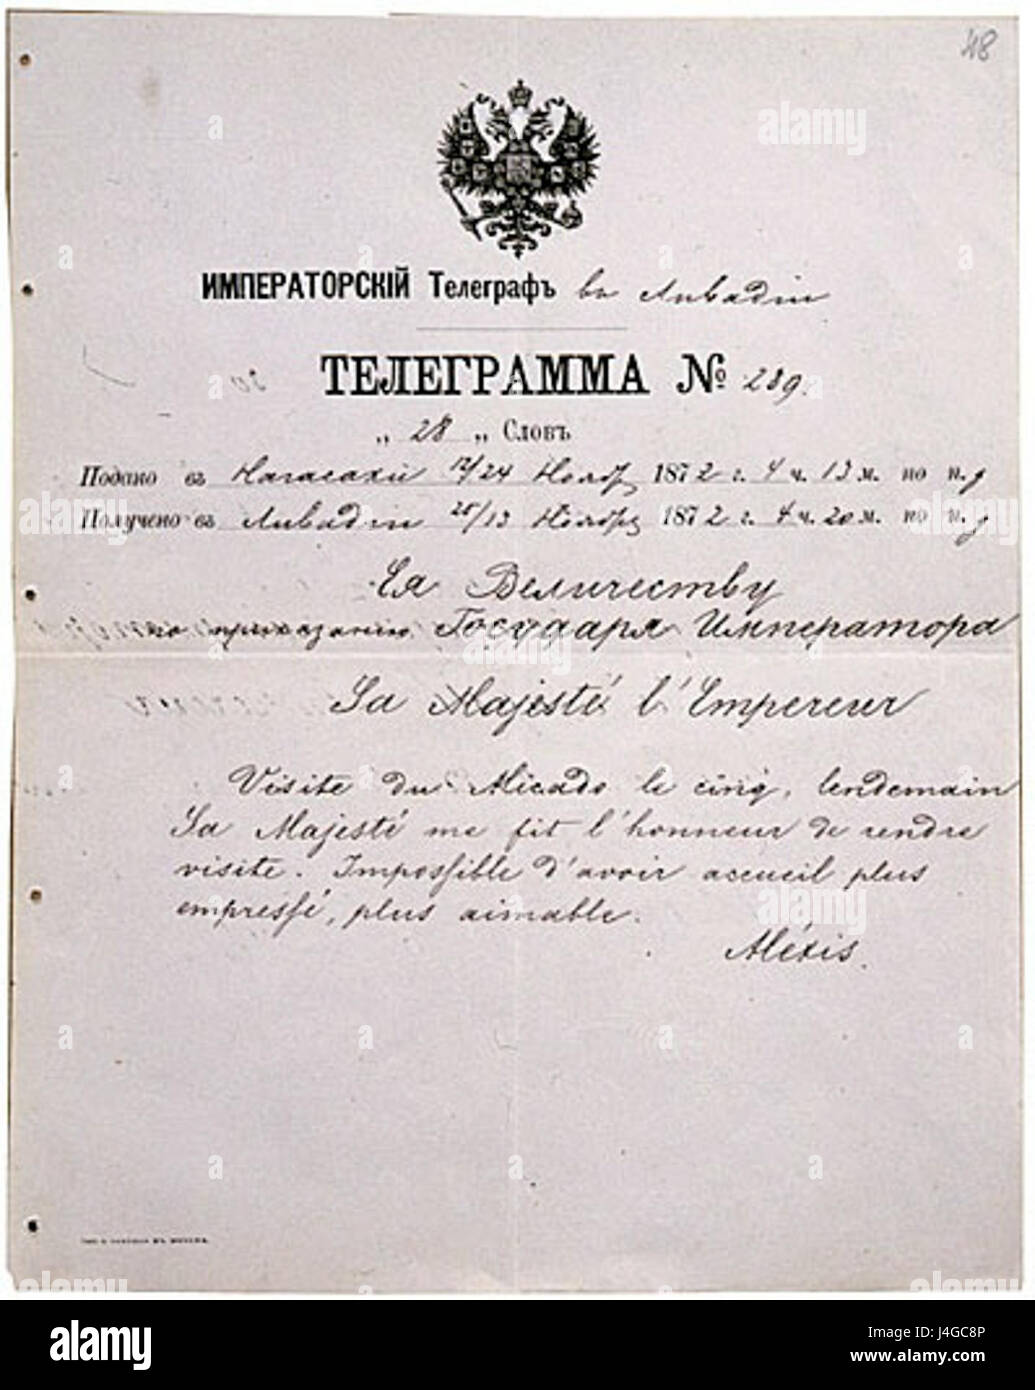 48
ИМПЕРАТОРСКІЙ Телеграфъ въ Ливадіи
ТЕЛЕГРАММА № 289.
„ 28 „ Словъ
Подано въ Нагасаки 12/24 Нояб 1872 г. 4 ч. 13 м. по п. д
Получено въ Ливадіи 25/13 Ноябр 1872 г. 4 ч. 20 м. по п. д
Ея Величеству
по приказанію Государя Императора
Sa Majesté l'Empereur
Visite du Micado le cinq, lendemain
Sa Majesté me fit l'honneur de rendre
visite. Impossible d'avoir accueil plus
empressé, plus aimable.
Alexis.
alamy
Image ID: J4GC8P
www.alamy.com